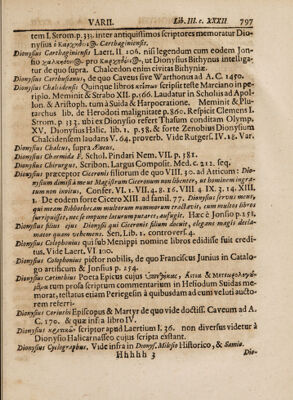 VARII. Lib. III. c. XXXII 797
tem I. Strom. p. 333. inter antiquissimos scriptores memoratur Dio-
nysius ὁ Καρχηδόνι@. Carthaginiensis.
Dionysius Carthaginiensis Laert. II 106. nisi legendum cum eodem Jon-
sio χαλκηδόνι@ pro καρχηδόνι@, ut Dionysius Bithynus intelliga-
tur de quo supra. Chalcedon enim civitas Bithyniæ.
Dionysius Carthusianus, de quo Caveus sive Warthonus ad A. C. 1450.
Dionysius Chalcidensis Quinque libros κτίσεων scripsit teste Marciano in pe-
riplo. Meminit & Strabo XII p. 566. Laudatur in Scholiis ad Apol-
lon. & Aristoph. tum à Suida & Harpocratione. Meminit & Plu-
tarchus lib. de Herodoti malignitate p. 860. Respicit Clemens I.
Strom. p. 333. ubi ex Dionysio refert Thaliam conditam Olymp.
XV, Dionysius Halic. lib. 1. p. 58. & forte Zenobius Dionysium
Chalcidensem laudans V. 64. proverb. Vide Rutgersf. IV. 18. Var.
Dionysius Chalcus, supra Æneus.
Dionysius Charmidæ F. Schol. Pindari Nem. VII. p. 381.
Dionysius Chirurgus. Scribon. Largus Composit. Med. c. 212. seq.
Dionysius præceptor Ciceronis filiorum de quo VIII. 30. ad Atticum: Dio-
nysium dimisi me at Magistrum Ciceronum non libenter, ut hominem ingra-
tum non invitus. Confer. VI. 1. VII. 4. 8. 16. VIII. 4 IX. 3. 14. XIII.
2. De eodem forte Cicero XIII. ad famil. 77. Dionysius servus meus,
qui meam Bibliothecam multorum nummorum tractavit, cum multos libros
surripuisset, nec se impune laturum putaret, aufugit. Hæc è Jonsio p. 158.
Dionysius filius ejus Dionysii qui Ciceronis filium docuit, elegans magis decla-
mator quam vehemens. Sen. Lib. 1. controvers. 4.
Dionysius Colophonius qui sub Menippi nomine libros edidisse suit credi-
tus, Vide Laert. VI 100.
Dionysius Colophonius pictor nobilis, de quo Franciscus Junius in Catalo-
go artificum & Jonsius p. 254.
Dionysius Corinthius Poeta Epicus cujus Ὑποθήκας, Αἴτια & Μετεωρολογού-
μενα tum prosa scriptum commentarium in Hesiodum Suidas me-
morat, testatus etiam Periegesin à quibusdam ad eum veluti aucto-
rem referri.
Dionysius Corinthi Episcopus & Martyr de quo vide doctiss. Caveum ad A.
C. 170. & quæ infra libro IV.
Dionysius κριτικὸς scriptor apud Laertium I. 36. non diversus videtur à
Dionysio Halicarnasseo cujus supra c. 26.
Dionysius Cyclographus. Vide infra in Dionys. Milesio Historico, & Samio.
Hhhhh 3 Dio-